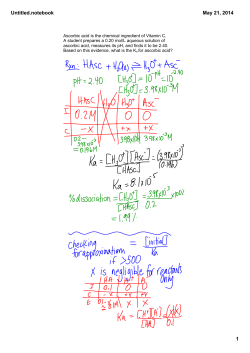 Untitled.notebook May 21, 2014
Ascorbic acid is the chemical ingredient of Vitamin C.
A student prepares a 0.20 mol/L aqueous solution of
ascorbic acid, measures its pH, and finds it to be 2.40.
Based on this evidence, what is the Ka for ascorbic acid?
HAsc + H₂O(l) ⇌ H₃O⁺ + Asc⁻
pH = 2.40 [H₃O⁺] = 10^-pH = 10^-2.40
[H₃O⁺] = 3.98x10⁻³ M
HAsc H₂O H₃O⁺ Asc⁻
I 0.2M 0 0
C -x +x +x
0.2 - 3.98x10⁻³ 3.98x10⁻³M 3.98x10⁻³M
= 0.196M
Ka = [H₃O⁺][Asc⁻] = (3.98x10⁻³)²
[HAsc] (0.196)
Ka = 8.1x10⁻⁵
% dissociation = [H₃O⁺] = 3.98x10⁻³ x100
[HAsc] 0.2
= 1.99%
Checking for approximation: [initial]
Ka
if >500
x is negligible for reactants only
HA H A
I 0.1 0 0
C -x +x +x
E x x
Ka = [H⁺][A⁻] = (x)(x)
[HA] 0.1
1